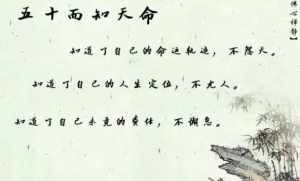 五十而知天命
知道了自己的命运轨迹，不怨天。
知道了自己的人生定位，不尤人。
知道了自己未竟的责任，不懈怠。
【佛心禅静】